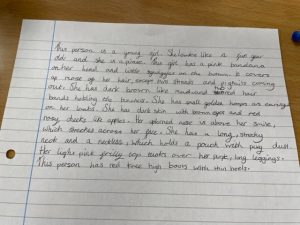 This person is a young girl. She looks like a five year
old and she is a pirate. This girl has a pink bandana
on her head and with on the bottom. It covers
up most of her hair, except two strands and coming
out. She has dark brown hair and red hair
bands holding the bunches. She has small golden hoops as earrings
on her ears. She has dark skin with brown eyes and red
rosy cheeks like apples. Her upturned nose is above her smile,
which stretches across her face. She has a long, stretchy
neck and a neckless, which holds a pouch with pixy dust.
Her light pink frilly top looks over her pink, long leggings.
This person has red knee high boots with thin heels.